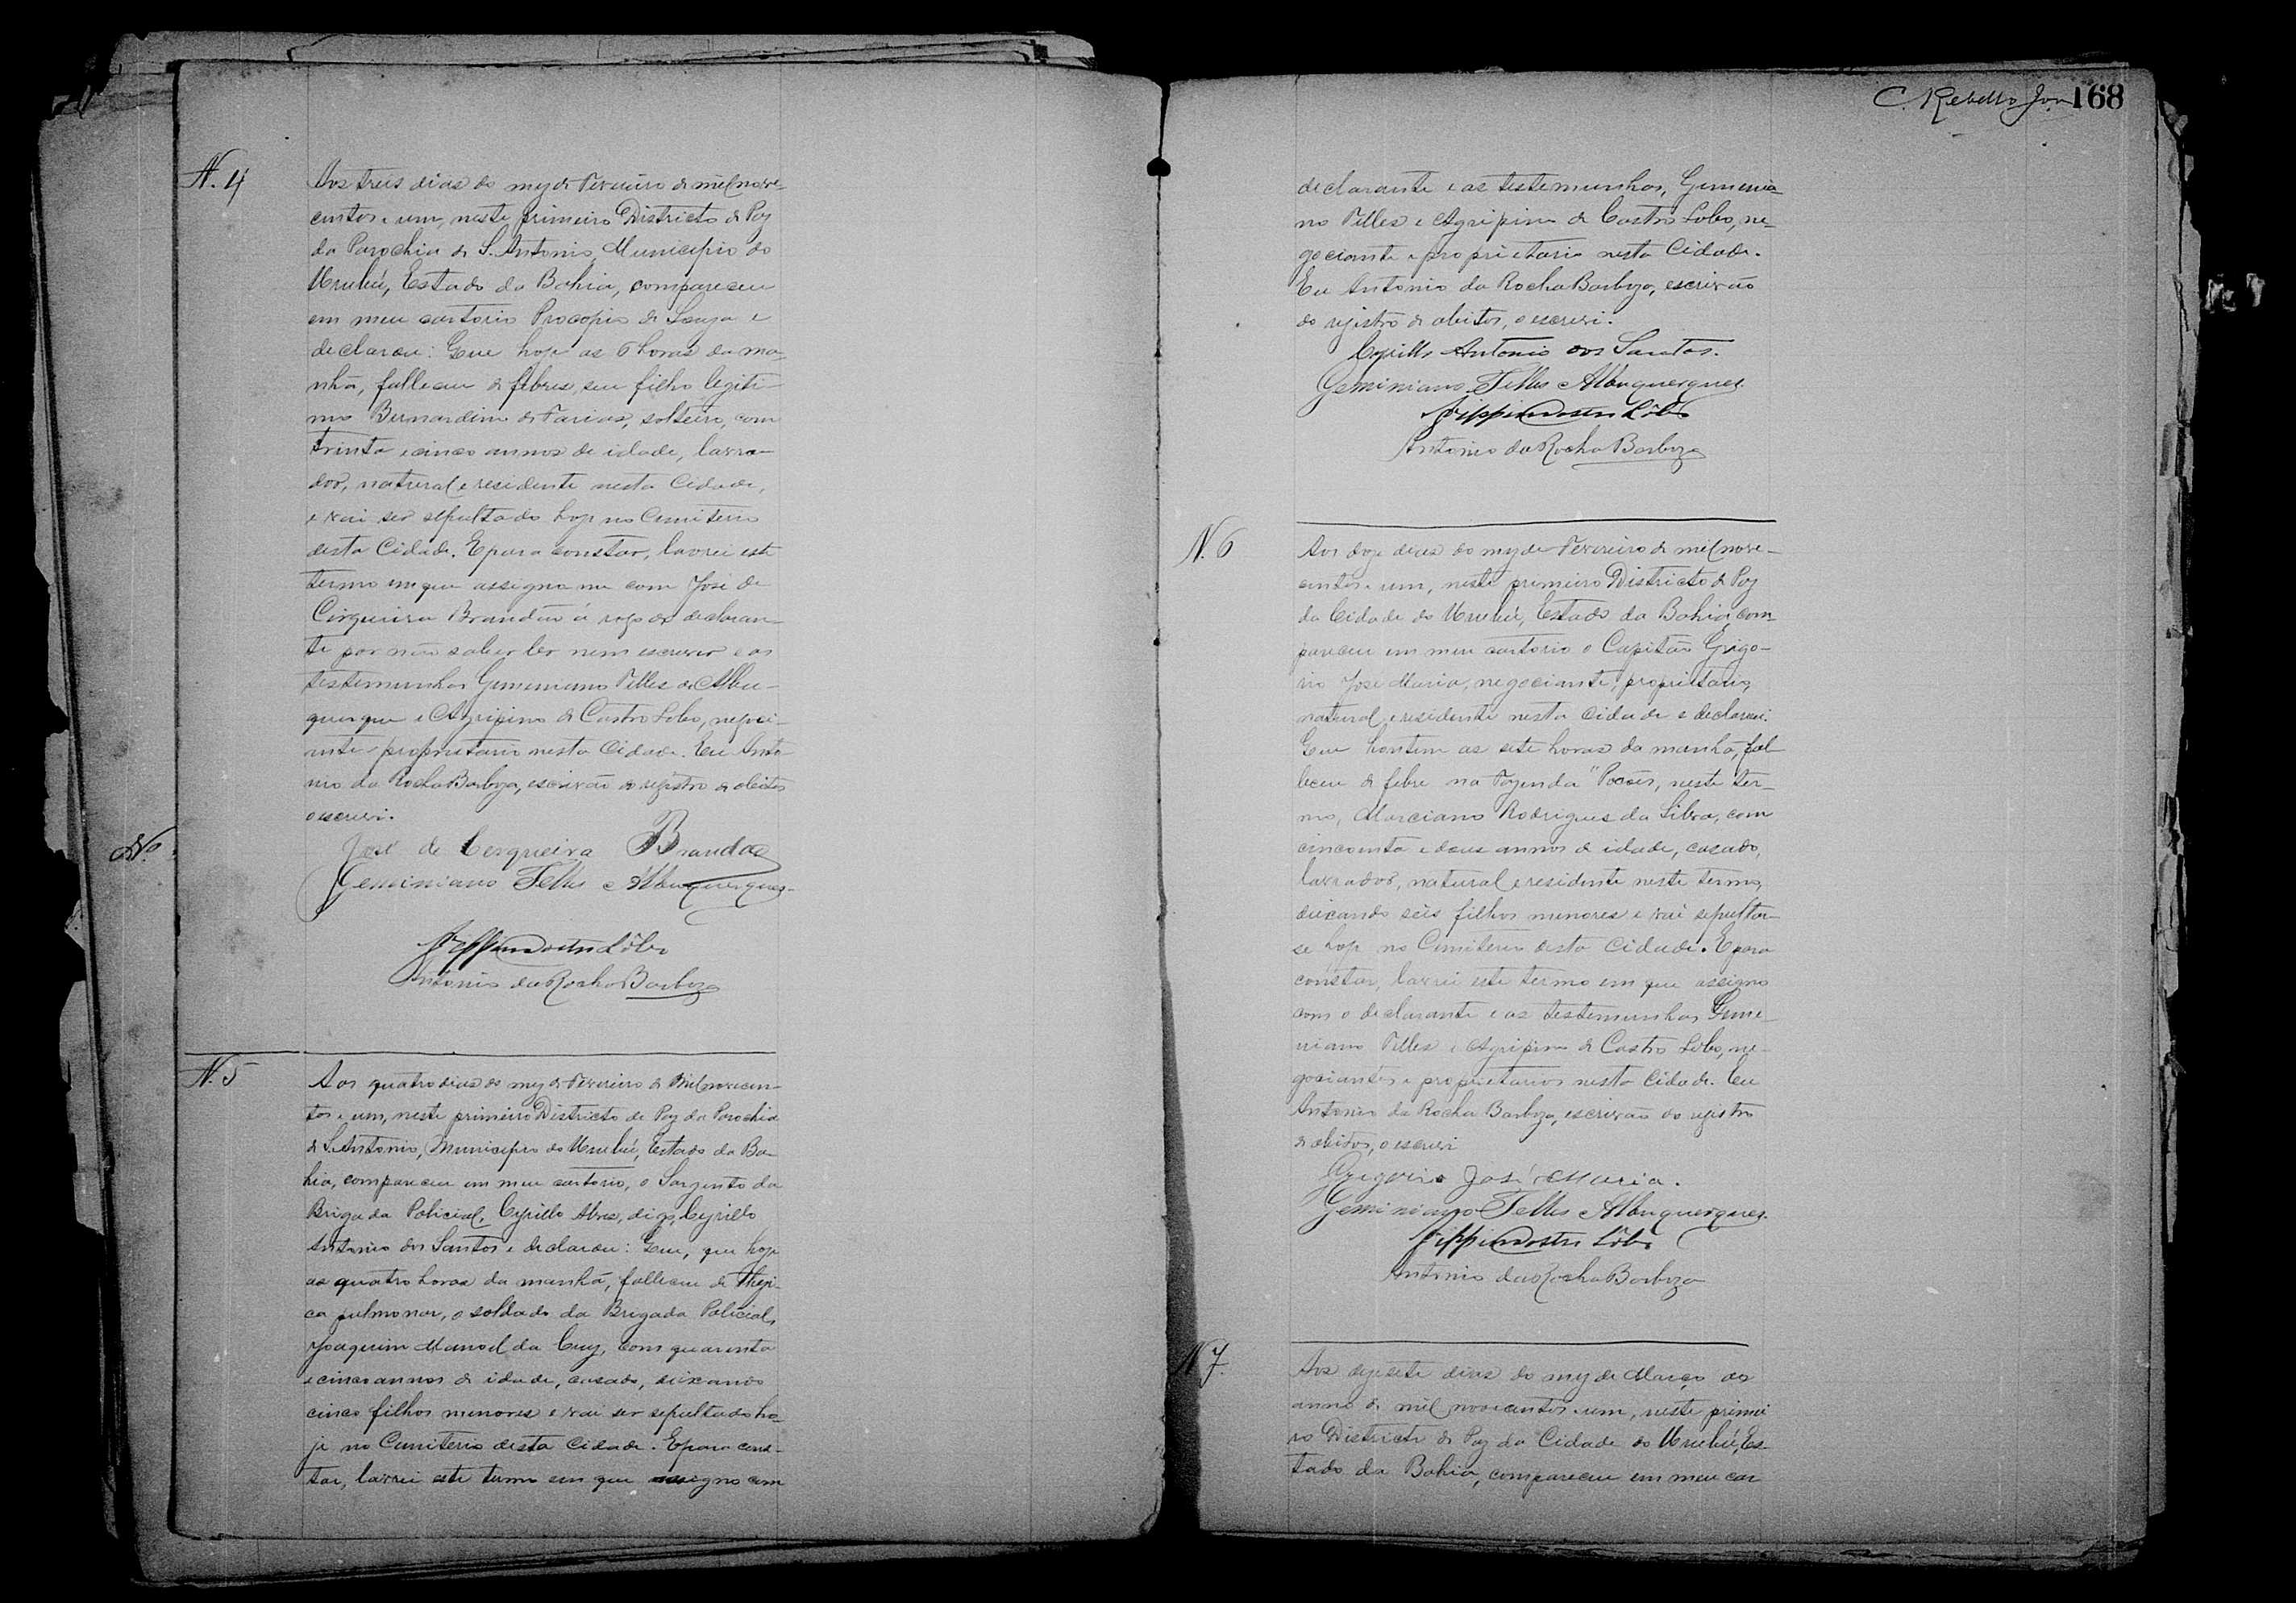 N. 4
Aos treis dias do mez de Fevereiro de mil nove-
centos e um, neste primeiro Districto de Paz
da Parochia de S. Antonio, Municipio do
Urubú, Estado da Bahia, compareceu
em meu cartorio Procopio de Souza e
declarou: Que hoje as 6 horas da ma-
nhã, falleceu de febres, seu filho legiti-
mo Bernardino de Farias, solteiro, com
trinta e cinco annos de idade, lavra-
dor, natural e residente nesta Cidade,
e vai ser sepultado hoje no Cemiterio
desta Cidade. E para constar, lavrei este
termo em que assigna me com José de
Cirqueira Brandão á rogo do declaran-
te por não saber ler nem escrever e as
testemunhas Geminiano Telles de Albu-
querque e Agripino de Castro Lobo, negoci-
ante e proprietario nesta Cidade. Eu Anto-
nio da Rocha Barboza, escrivão do registro de obitos
o escrevi.
José de Cerqueira Brandão
Geminiano Telles e Albuquerques
Lôbo
Antonio da Rocha Barboza
N.
N. 5
Aos quatro dias do mez de Fevereiro de Mil novecen-
tos e um, neste primeiro Districto de Paz da Parochia
de S. Antonio, Municipio do Urubú, Estado da Ba-
hia, compareceu em meu cartorio, o Sargento da
Brigada Policial, Cyrillo Alves, digo, Cyrillo
Antonio dos Santos e declarou: Que, que hoje
as quatro horas da manhã, falleceu de thezi-
ca pulmonar, o soldado da Brigada Policial,
Joaquim Manoel da Cruz, com quarenta
e cinco annos de idade, casado, deixando
cinco filhos menores e vai ser sepultado ho-
je no Cemiterio desta Cidade. E para cons-
tar, lavrei este termo em que assigno com
C. Rebello Jor. 168
declarante e as testemunhas, Geminia-
no Telles e Agripino de Castro Lobo, ne-
gociante e proprietario nesta Cidade.
Eu Antonio da Rocha Barboza, escrivão
do registro de obitos, o escrevi.
Cyrillo Antonio dos Santos.
Geminiano Telles Albuquerques
Lôbo
Antonio da Rocha Barboza
N. 6
Aos doze dias do mez de Fevereiro de mil nove-
centos e um, neste primeiro Districto de Paz
da Cidade do Urubú, Estado da Bahia, com-
pareceu em meu cartorio o Capitão Grigo-
rio José Maria, negociante, proprietario,
natural e residente nesta Cidade e declarou:
Que hontem as sete horas da manhã, fal-
leceu de febre na Fazenda "Pocões, neste ter-
mo, Marciano Rodrigues da Silva, com
cincoenta e dous annos de idade, casado,
lavrador, natural e residente neste termo,
deixando seis filhos menores e vai sepultar-
se hoje no Cemiterio desta Cidade. E para
constar, lavrei este termo em que assigno
com o declarante e as testemunhas Gemi-
niano Telles e Agripino de Castro Lobo, ne-
gociantes e proprietarios nesta Cidade. Eu
Antonio da Rocha Barboza, escrivão do registro
de obitos, o escrevi
Grigorio José Maria.
Geminiano Telles Albuquerques.
Lôbo
Antonio da Rocha Barboza
N 7.
Aos dezesete dias do mez de Março do
anno de mil novecentos e um, neste primei
ro Districto de Paz da Cidade do Urubú, Es-
tado da Bahia, compareceu em meu car